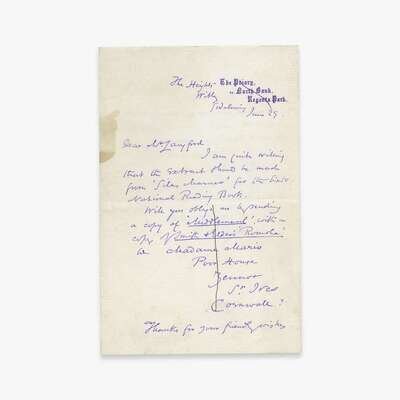 The Priory,
21. North Bank,
Regents Park.
The Heights
Witley
Godalming
June 29.
Dear Mr Langford
I am quite willing
that the Extract should be made
from 'Silas Marner' for the
National Reading Book.
Will you oblige me by sending
a copy of 'Middlemarch' with a
copy
to Madame Mario
Poor House
Zennor
St Ives
Cornwall?
Thanks for your friendly wishes